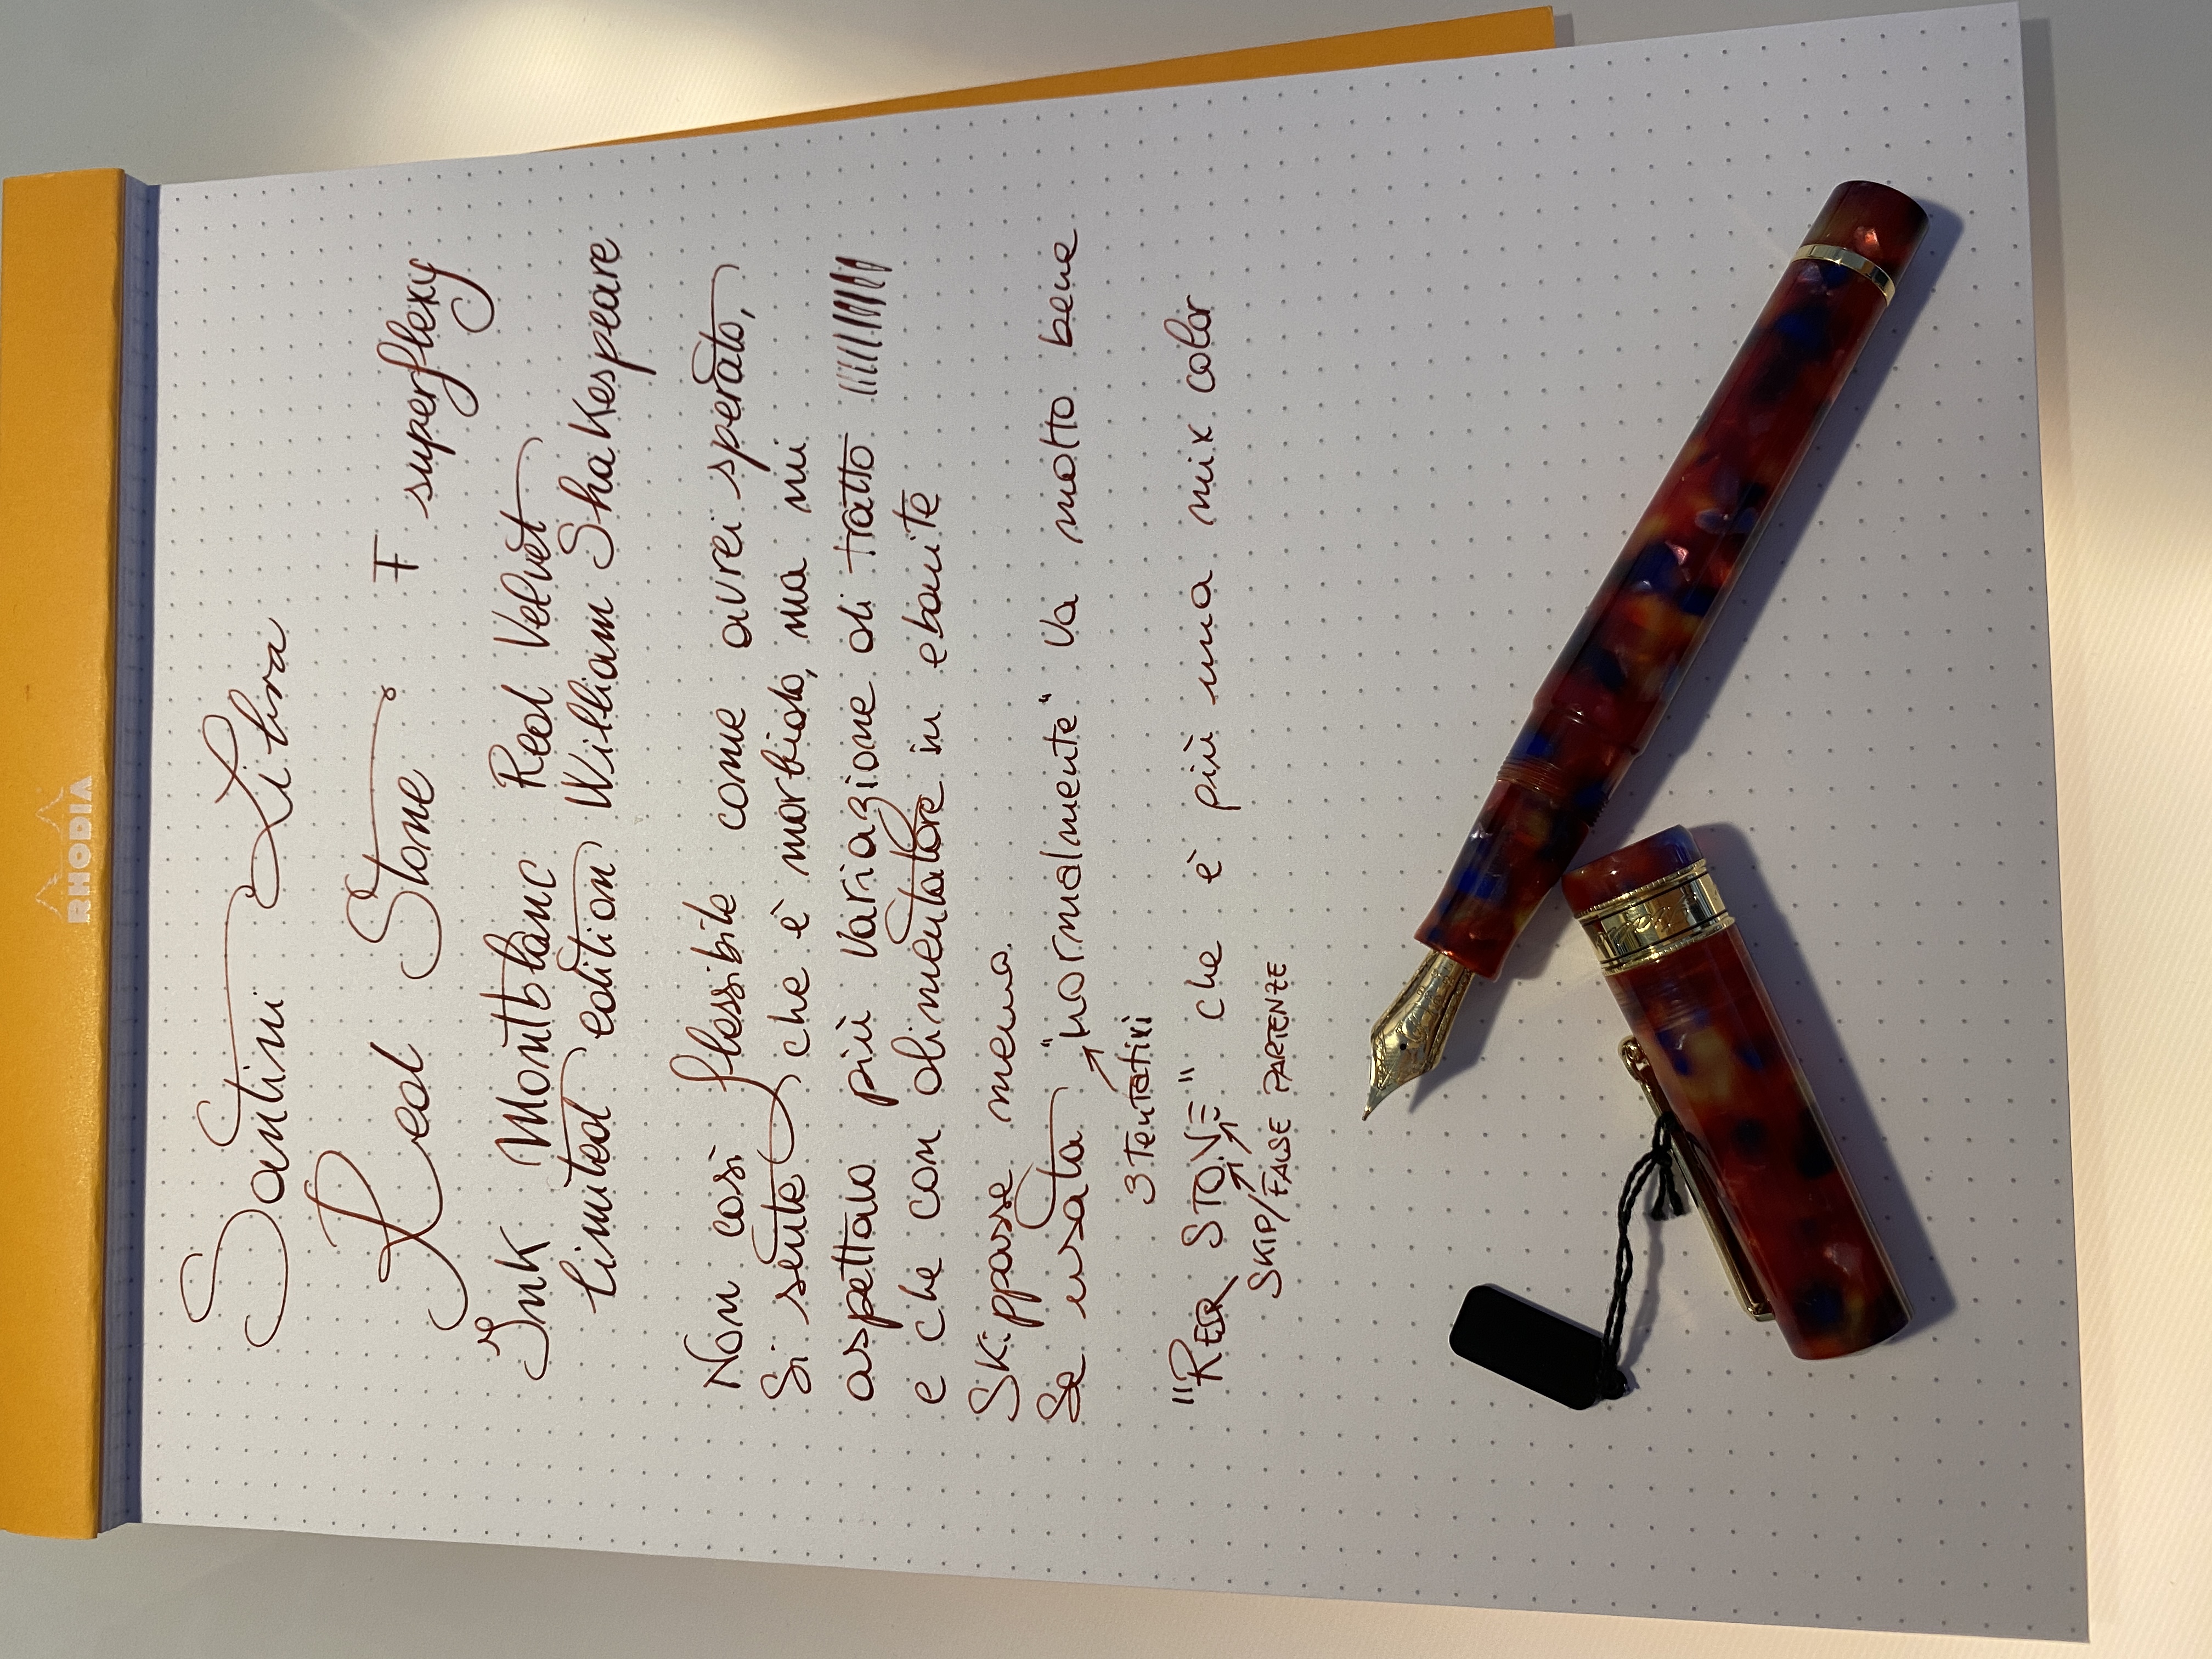 RHODIA
Santini Libra
Red Stone. F superflexy
Ink Montblanc Red Velvet
limited edition William Shakespeare
Non così flessibile come avrei sperato,
Si sente che è morbido, ma mi
aspettavo più variazione di tratto
e che con alimentatore in ebanite
skippasse meno.
Se usata "normalmente" va molto bene
3 tentativi
"RED STONE" che è più una mix color
SKIP/FALSE PARTENZE